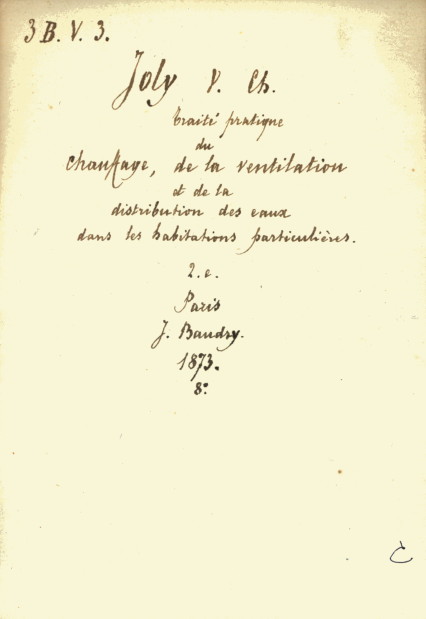 3 B. V. 3.
Joly V. Ch.
traité pratique
du
chauffage, de la ventilation
et de la
distribution des eaux
dans les habitations particulières.
2. e.
Paris
J. Baudry.
1873.
8°.